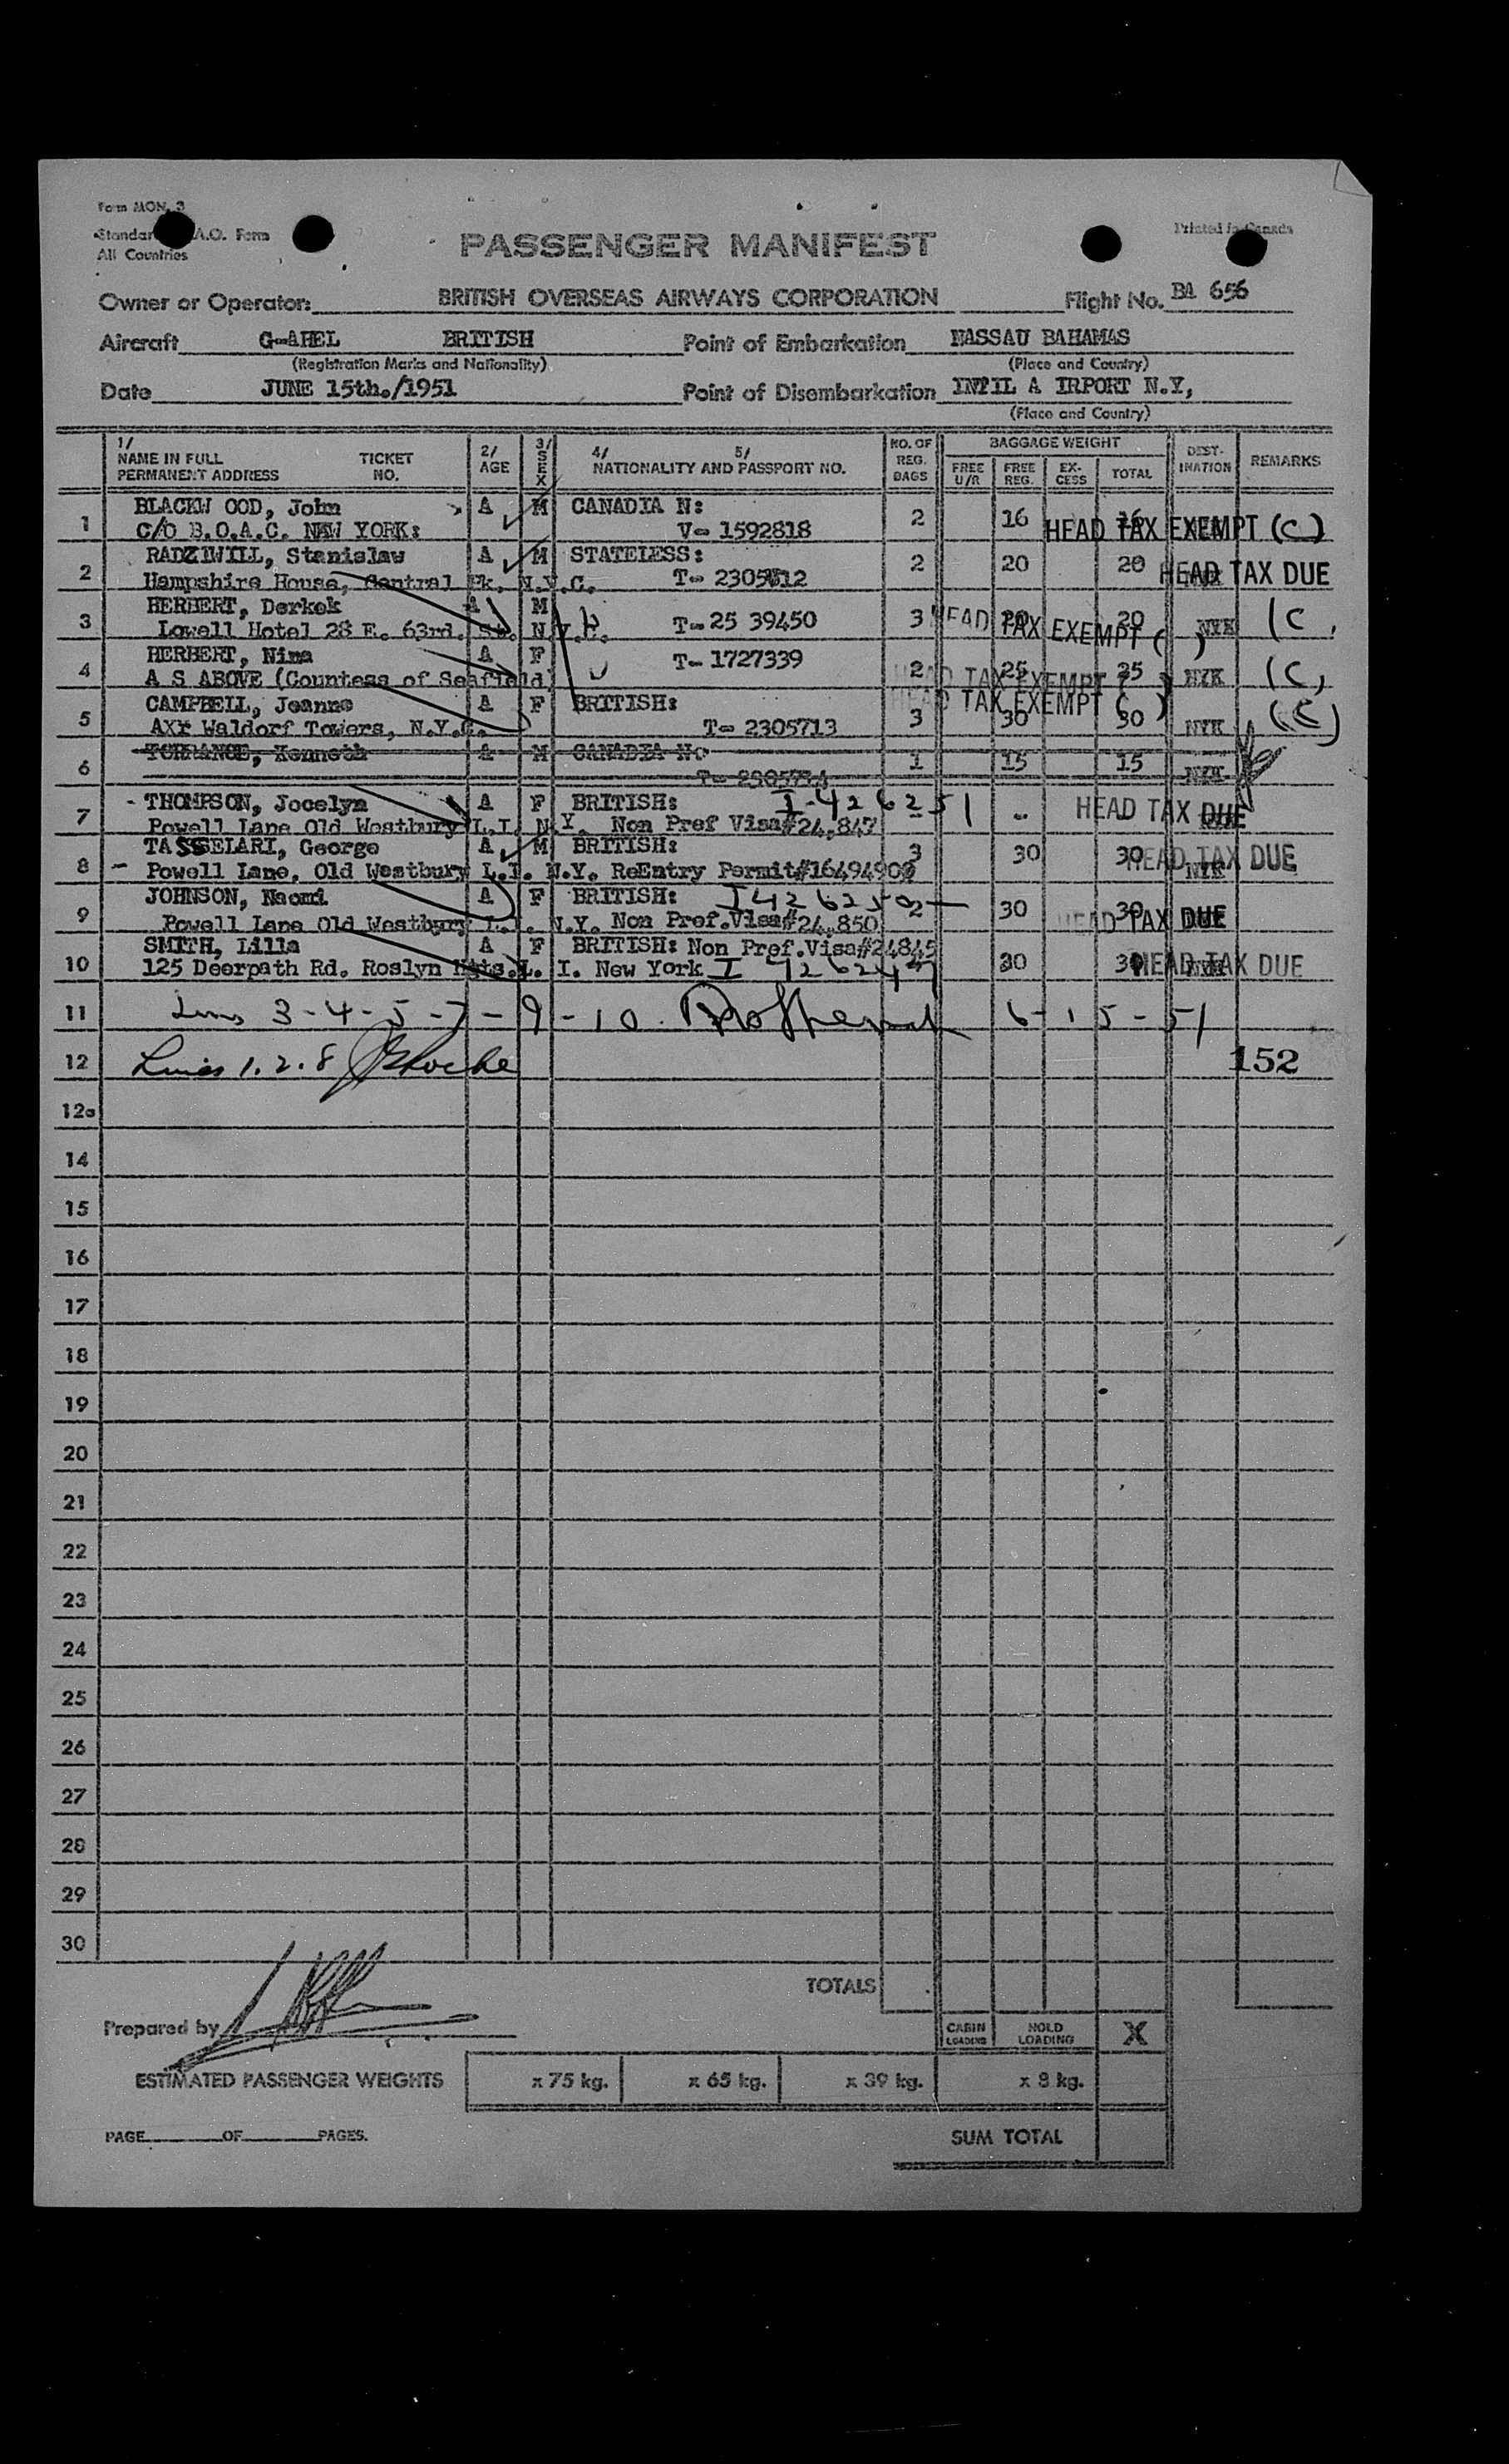 Form MON. 3
Standar A.O. Form
All Countries
Printed in Canada
PASSENGER MANIFEST
Owner or Operator: BRITISH OVERSEAS AIRWAYS CORPORATION Flight No. BA 656
Aircraft G-AHEL BRITISH Point of Embarkation NASSAU BAHAMAS
(Registration Marks and Nationality) (Place and Country)
Date JUNE 15th./1951 Point of Disembarkation INTIL A IRPORT N.Y,
(Place and Country)
1/ NAME IN FULL PERMANENT ADDRESS TICKET NO. 2/ AGE 3/ SEX 4/ 5/ NATIONALITY AND PASSPORT NO. NO. OF REG. BAGS BAGGAGE WEIGHT FREE U/R FREE REG. EX-CESS TOTAL DEST-INATION REMARKS
BLACKW OOD, John A M CANADIA N:
1 C/O B.O.A.C. NEW YORK: V- 1592818 2 16 16 HEAD TAX EXEMPT (C)
RADZIWILL, Stanislaw A M STATELESS:
2 Hampshire House, Central Pk. N.Y.C. T- 2305712 2 20 20 HEAD TAX DUE
HERBERT, Derkek A M
3 Lowell Hotel 28 E. 63rd. St. N.Y.C. T- 25 39450 3 20 20 HEAD TAX EXEMPT ( ) NYK (C,
HERBERT, Nina A F T- 1727339
4 A S ABOVE (Countess of Seafield) 2 25 25 HEAD TAX EXEMPT ( ) NYK (C,
CAMPBELL, Jeanne A F BRITISH: HEAD TAX EXEMPT ( )
5 AXr Waldorf Towers, N.Y.C. T- 2305713 3 30 30 NYK (C)
TORRANCE, Kenneth A M CANADIA N:
6 1 15 15 NYK
THOMPSON, Jocelyn A F BRITISH: I-426251
7 Powell Lane Old Westbury L.I. N.Y. Non Pref Visa#24,847 - .. HEAD TAX DUE
TASSELARI, George A M BRITISH:
8 Powell Lane, Old Westbury L.I. N.Y. ReEntry Permit#1649490 3 30 30 NYK HEAD TAX DUE
JOHNSON, Naomi A F BRITISH: I426250
9 Powell Lane Old Westbury L.I. N.Y. Non Pref.Visa#24,850 2 30 30 HEAD TAX DUE
SMITH, Lilla A F BRITISH: Non Pref.Visa#24845
10 125 Deerpath Rd. Roslyn Hts. L. I. New York I 426247 30 30 HEAD TAX DUE
11 Lines 3-4-5-7-9-10 6-15-51
12 Lines 1.2.8 152
12a
14
15
16
17
18
19
20
21
22
23
24
25
26
27
28
29
30
TOTALS
Prepared by
CABIN LOADING HOLD LOADING X
ESTIMATED PASSENGER WEIGHTS x 75 kg. x 65 kg. x 39 kg. x 8 kg.
PAGE OF PAGES.
SUM TOTAL